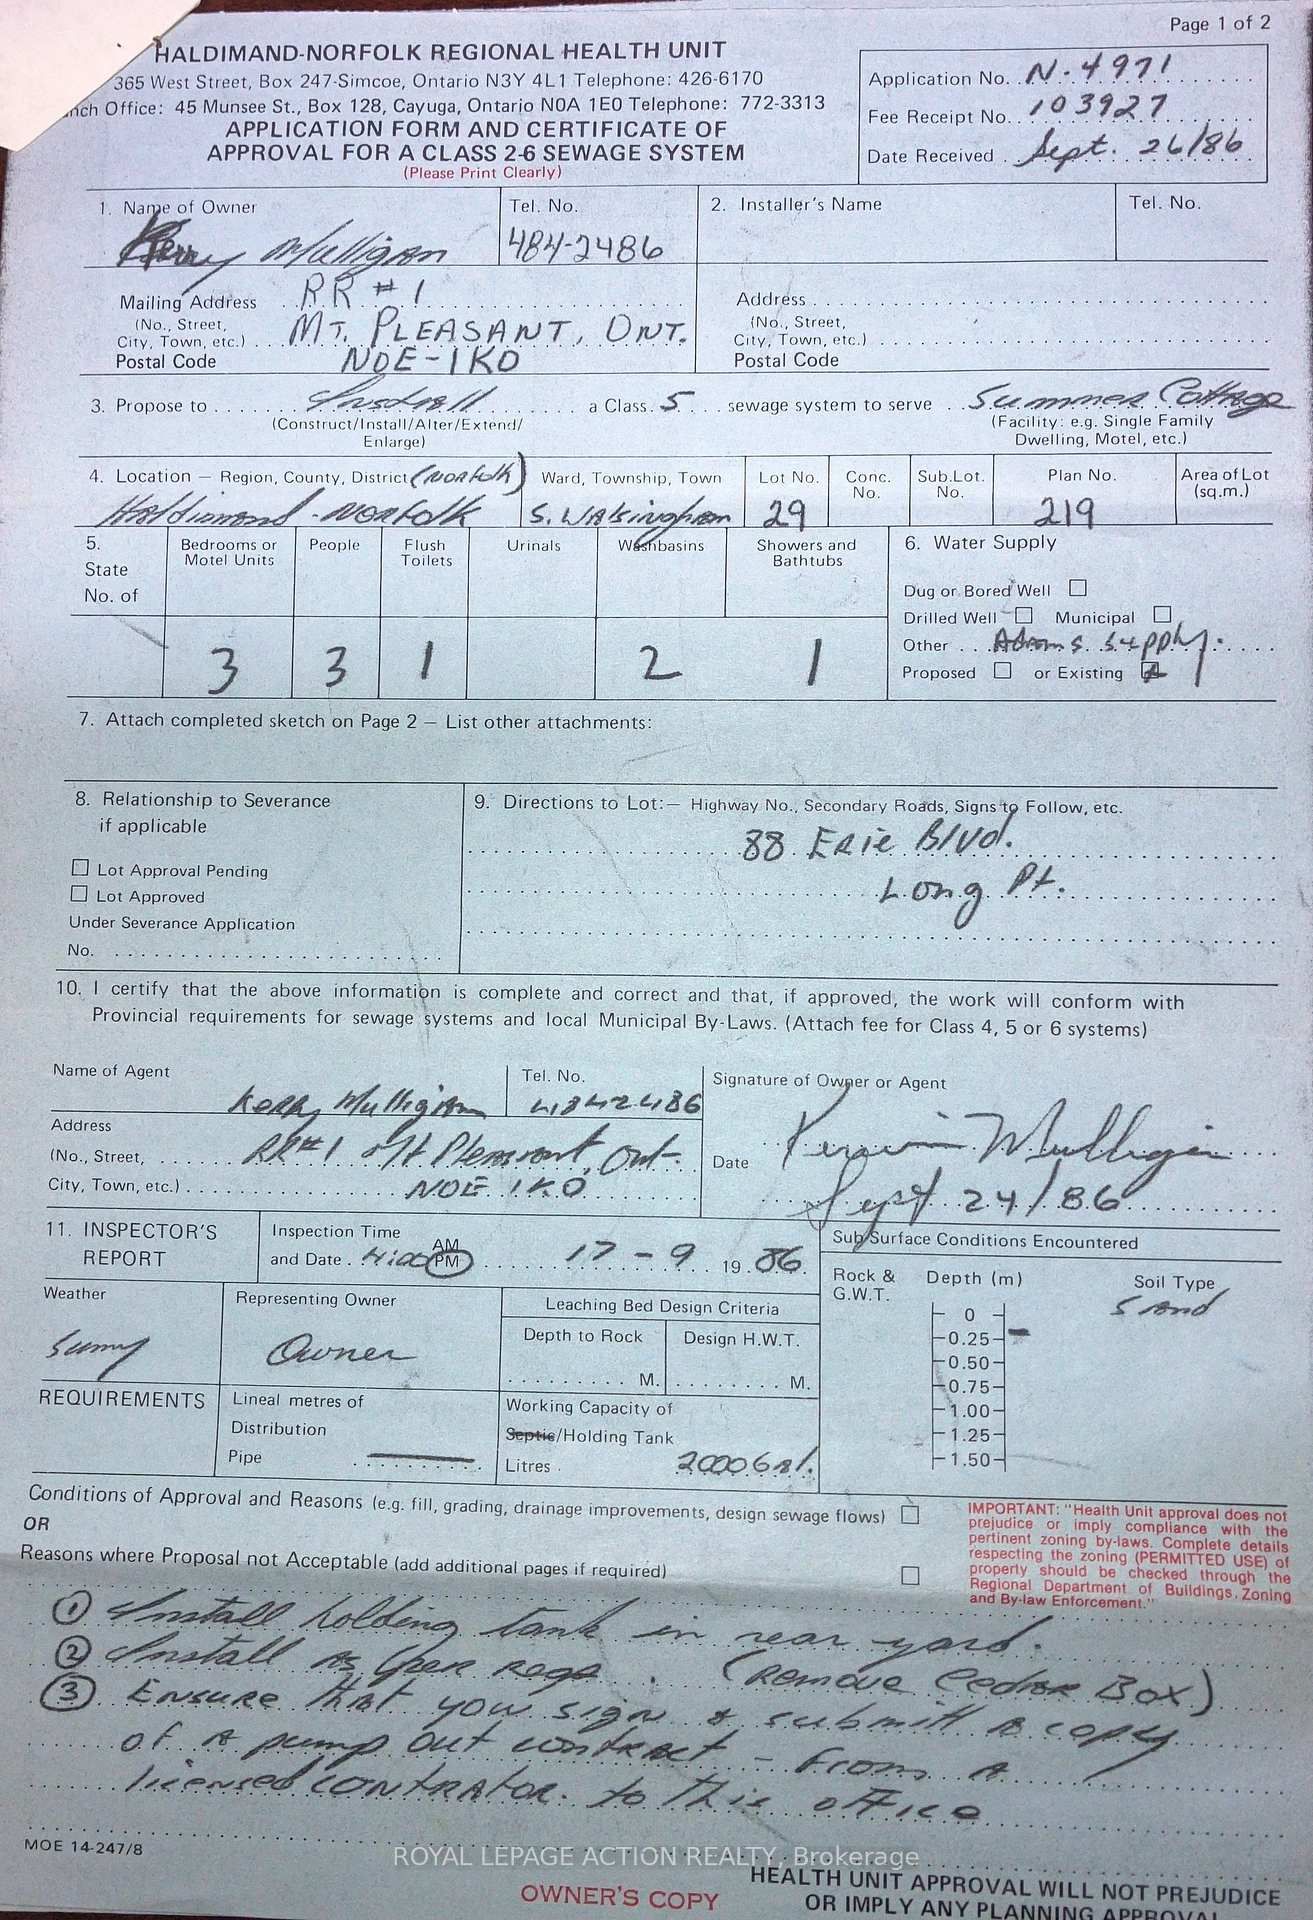 Page 1 of 2
HALDIMAND-NORFOLK REGIONAL HEALTH UNIT
365 West Street, Box 247-Simcoe, Ontario N3Y 4L1 Telephone: 426-6170
nch Office: 45 Munsee St., Box 128, Cayuga, Ontario N0A 1E0 Telephone: 772-3313
APPLICATION FORM AND CERTIFICATE OF
APPROVAL FOR A CLASS 2-6 SEWAGE SYSTEM
(Please Print Clearly)
Application No. N-4971
Fee Receipt No. 103927
Date Received Sept. 26/86
1. Name of Owner
Kerry Mulligan
Tel. No.
484-2486
2. Installer's Name
Tel. No.
Mailing Address RR #1
(No., Street,
City, Town, etc.) MT. PLEASANT, ONT.
Postal Code NOE-1KO
Address
(No., Street,
City, Town, etc.)
Postal Code
3. Propose to Install a Class 5 sewage system to serve Summer Cottage
(Construct/Install/Alter/Extend/
Enlarge)
(Facility: e.g. Single Family
Dwelling, Motel, etc.)
4. Location — Region, County, District (Norfolk)
Haldimand-Norfolk
Ward, Township, Town
S. Walsingham
Lot No.
29
Conc.
No.
Sub.Lot.
No.
Plan No.
219
Area of Lot
(sq.m.)
5.
State
No. of
Bedrooms or
Motel Units
3
People
3
Flush
Toilets
1
Urinals
Washbasins
2
Showers and
Bathtubs
1
6. Water Supply
Dug or Bored Well
Drilled Well Municipal
Other Adams Supply.
Proposed or Existing
7. Attach completed sketch on Page 2 — List other attachments:
8. Relationship to Severance
if applicable
Lot Approval Pending
Lot Approved
Under Severance Application
No.
9. Directions to Lot:— Highway No., Secondary Roads, Signs to Follow, etc.
88 Erie Blvd.
Long Pt.
10. I certify that the above information is complete and correct and that, if approved, the work will conform with
Provincial requirements for sewage systems and local Municipal By-Laws. (Attach fee for Class 4, 5 or 6 systems)
Name of Agent
Kerry Mulligan
Tel. No.
4842486
Address
(No., Street, RR#1 Mt Pleasant, Ont.
City, Town, etc.) NOE 1KO
Signature of Owner or Agent
Kerwin Mulligan
Date
Sept 24/86
11. INSPECTOR'S
REPORT
Inspection Time
and Date 4:00 AM PM 17-9 1986
Sub Surface Conditions Encountered
Rock &
G.W.T.
Depth (m)
Soil Type
Sand
0
0.25
0.50
0.75
1.00
1.25
1.50
Weather
Sunny
Representing Owner
Owner
Leaching Bed Design Criteria
Depth to Rock
M.
Design H.W.T.
M.
REQUIREMENTS
Lineal metres of
Distribution
Pipe
Working Capacity of
Septic/Holding Tank
Litres 2000 Gal.
Conditions of Approval and Reasons (e.g. fill, grading, drainage improvements, design sewage flows)
OR
Reasons where Proposal not Acceptable (add additional pages if required)
IMPORTANT: "Health Unit approval does not
prejudice or imply compliance with the
pertinent zoning by-laws. Complete details
respecting the zoning (PERMITTED USE) of
property should be checked through the
Regional Department of Buildings, Zoning
and By-law Enforcement."
1 Install holding tank in rear yard.
2 Install as per regs. (Remove Cedar Box)
3 Ensure that you sign & submitt a copy
of a pump out contract - from a
licensed contrator. to this office
MOE 14-247/8
ROYAL LEPAGE ACTION REALTY, Brokerage
OWNER'S COPY
HEALTH UNIT APPROVAL WILL NOT PREJUDICE
OR IMPLY ANY PLANNING APPROVAL